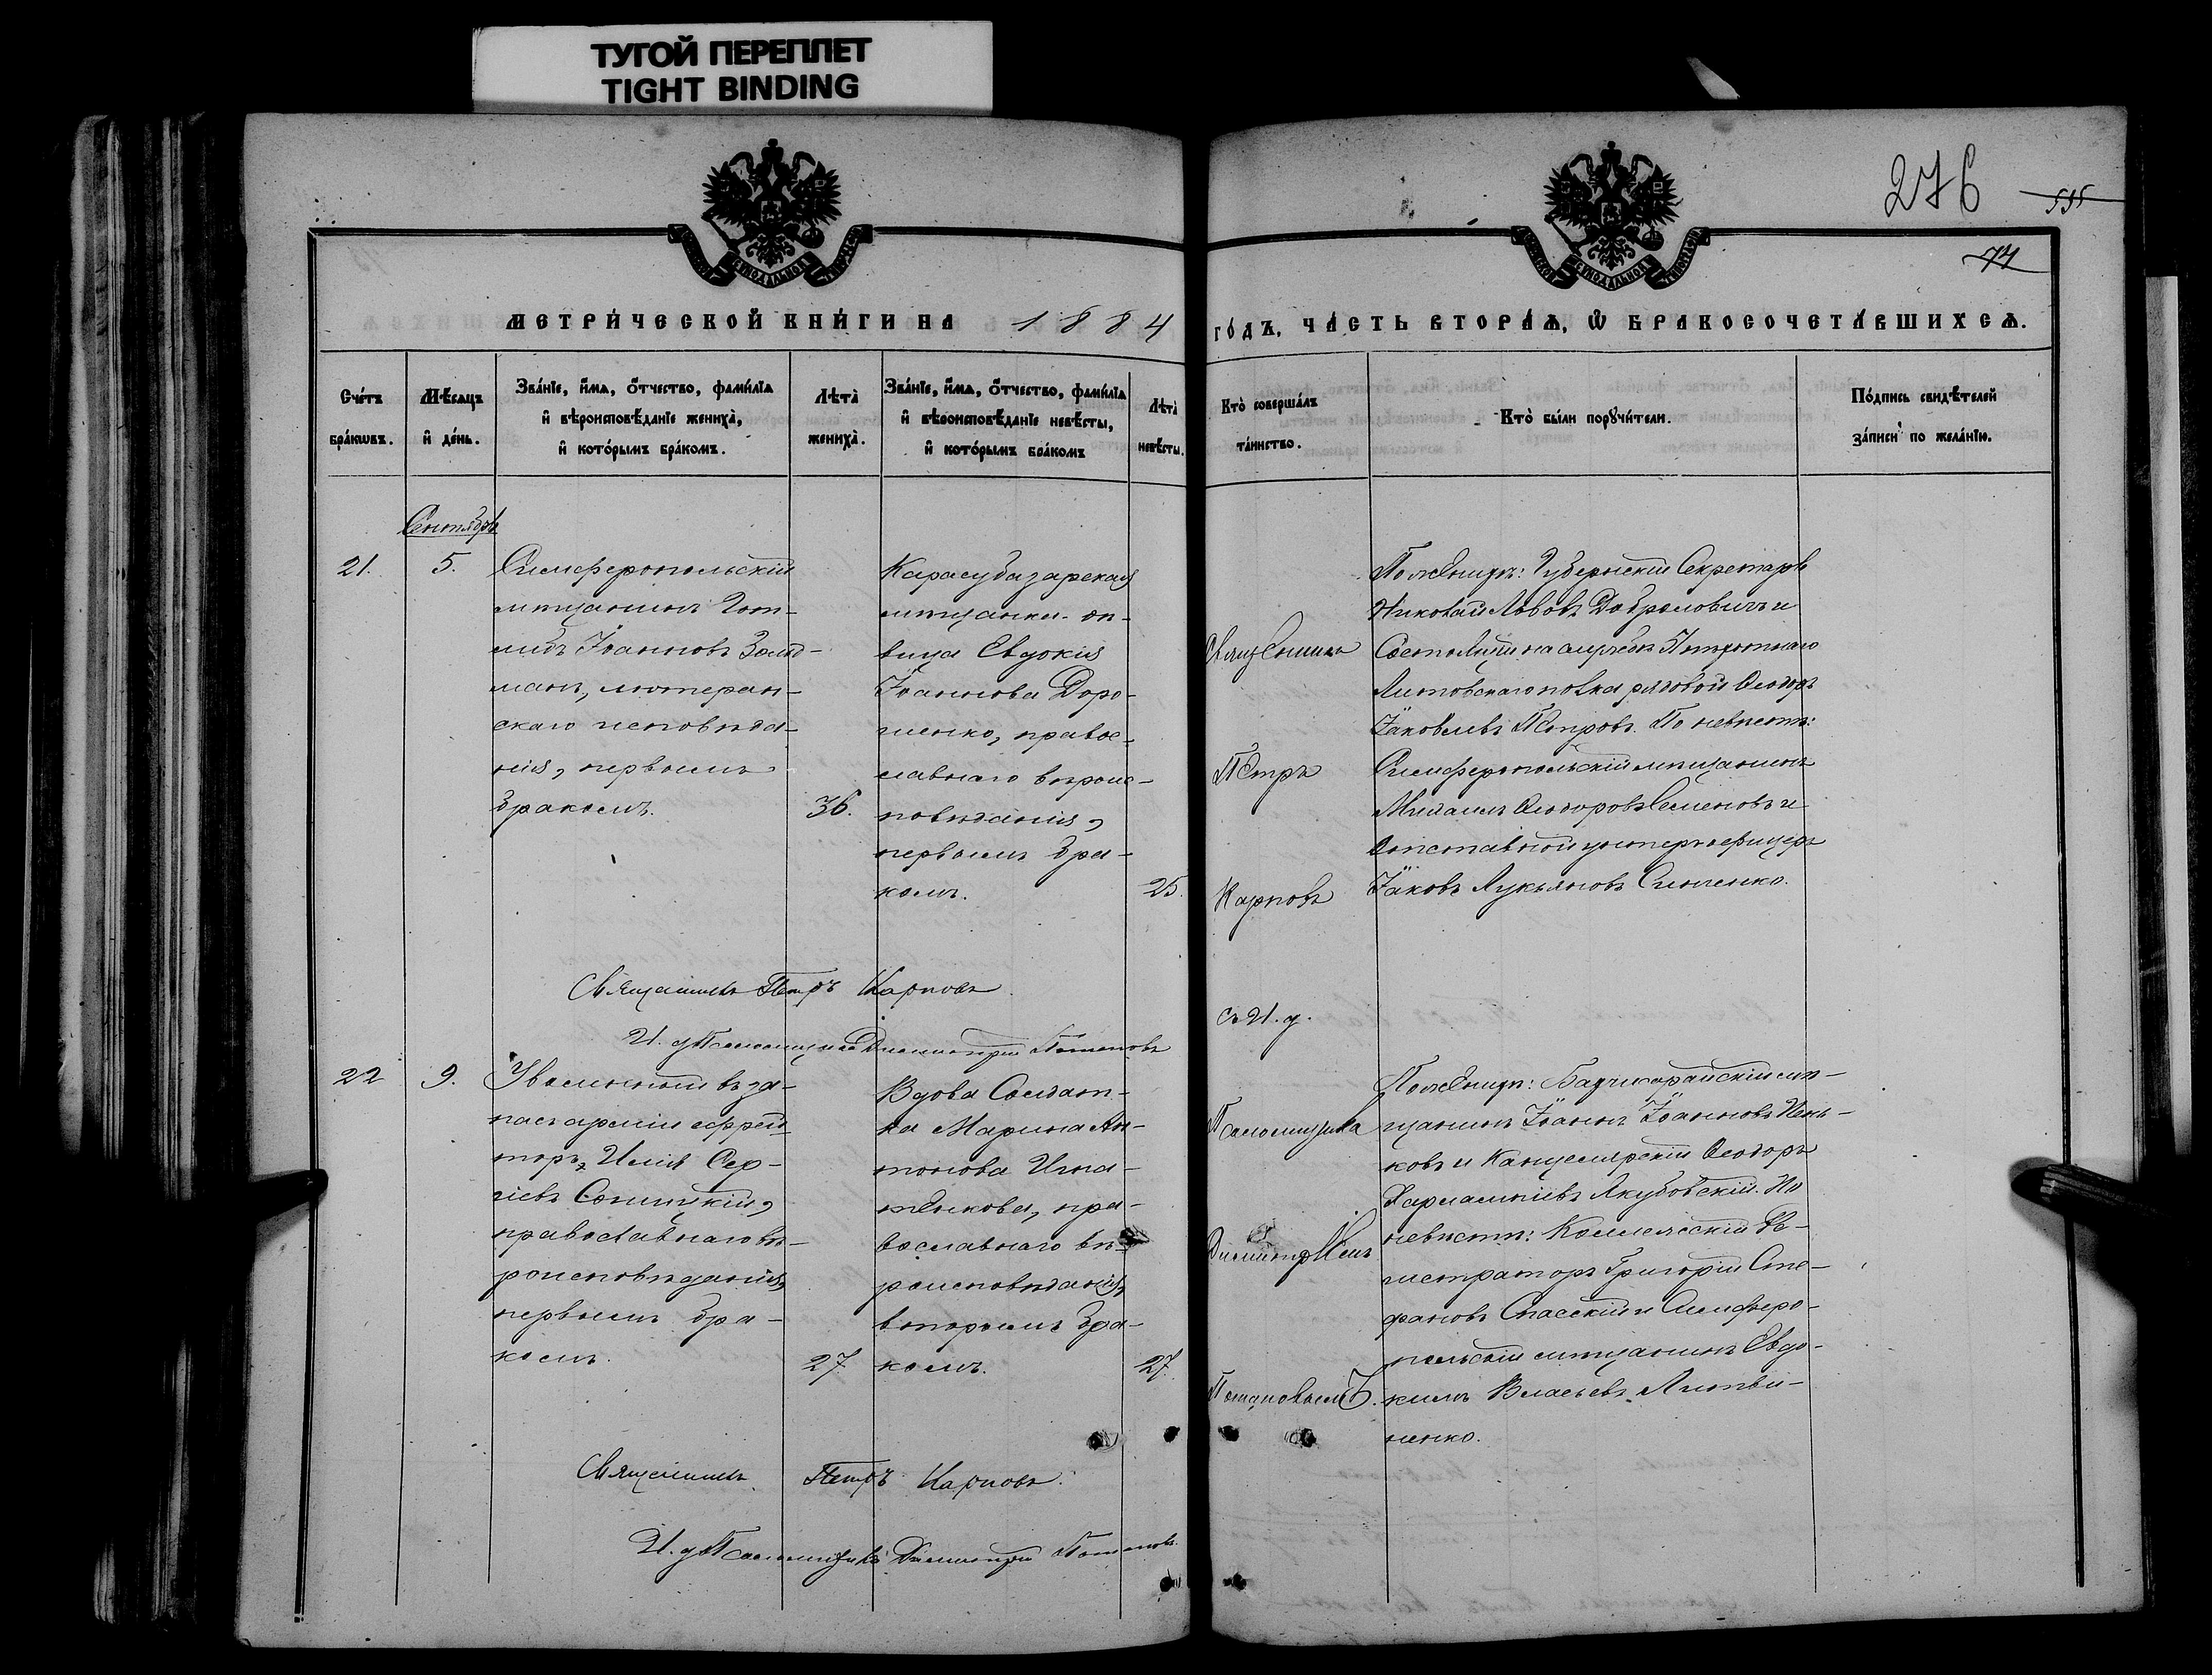 ТУГОЙ ПЕРЕПЛЕТ
TIGHT BINDING
276
535
74
МЕТРИ́ЧЕСКОЙ КНИ́ГИ НА 1884
ГО́ДЪ, ЧА́СТЬ ВТОРА́Ѧ, Ѡ҆ БРАКОСОЧЕТА́ВШИХСѦ.
Сче́тъ бра́кѡвъ.
Мѣ́сяцъ и҆ де́нь.
Зва́нїе, и҆́мѧ, ѻ҆́тчество, фами́лїѧ
и҆ вѣроисповѣ́данїе жениха̀,
и҆ кото́рымъ бра́комъ.
Лѣта̀ жениха̀.
Зва́нїе, и҆́мѧ, ѻ҆́тчество, фами́лїѧ
и҆ вѣроисповѣ́данїе невѣ́сты,
и҆ кото́рымъ бра́комъ
Лѣта̀ невѣ́сты.
Кто̀ соверша́лъ та́инство.
Кто̀ бы́ли порꙋчи́тели.
По́дпись свидѣ́телей за́писи по жела́нїю.
Сентябрь
21.
5.
Симферопольскій
мѣщанинъ Гот-
либъ Іоанновъ Зольд-
манъ, лютеран-
скаго исповѣда-
нія, первымъ
бракомъ.
36.
Карасубазарская
мѣщанка дѣ-
вица Евдокія
Іоаннова Доро-
шенко, правос-
лавнаго вѣроис-
повѣданія,
первымъ бра-
комъ.
25.
Священникъ
Петръ
Карповъ
съ И. д.
Псаломщика
Димитріемъ
Потаповымъ.
По женихѣ: Губернскій Секретарь
Николай Львовъ Добромовичъ и
Состоящій на службѣ Пѣхотнаго
Литовскаго полка рядовой Ѳеодоръ
Іаковлевъ Петровъ. По невѣстѣ:
Симферопольскій мѣщанинъ
Михаилъ Ѳеодоровъ Семеновъ и
Отставной унтеръ-офицеръ
Іаковъ Лукьяновъ Симченко.
Священникъ Петръ Карповъ
И. д. Псаломщика Димитрій Потаповъ
22
9.
Уволенный въ за-
пасъ арміи ефрей-
торъ, Илія Сер-
гіевъ Сотицкій,
православнаго вѣ-
роисповѣданія,
первымъ бра-
комъ.
27
Вдова Солдат-
ка Марина Ан-
тонова Игна-
тенкова, пра-
вославнаго вѣ-
роисповѣданія,
вторымъ бра-
комъ.
27.
По женихѣ: Бахчисарайскій мѣ-
щанинъ Іоаннъ Іоанновъ Пень-
ковъ и Канцелярскій Ѳеодоръ
Харлампіевъ Якубовскій. По
невѣстѣ: Коллежскій Ре-
гистраторъ Григорій Сте-
фановъ Спасскій и Симферо-
польскій мѣщанинъ Евдо-
кимъ Власьевъ Литви-
ненко.
Священникъ Петръ Карповъ.
И. д. Псаломщика Димитрій Потаповъ.